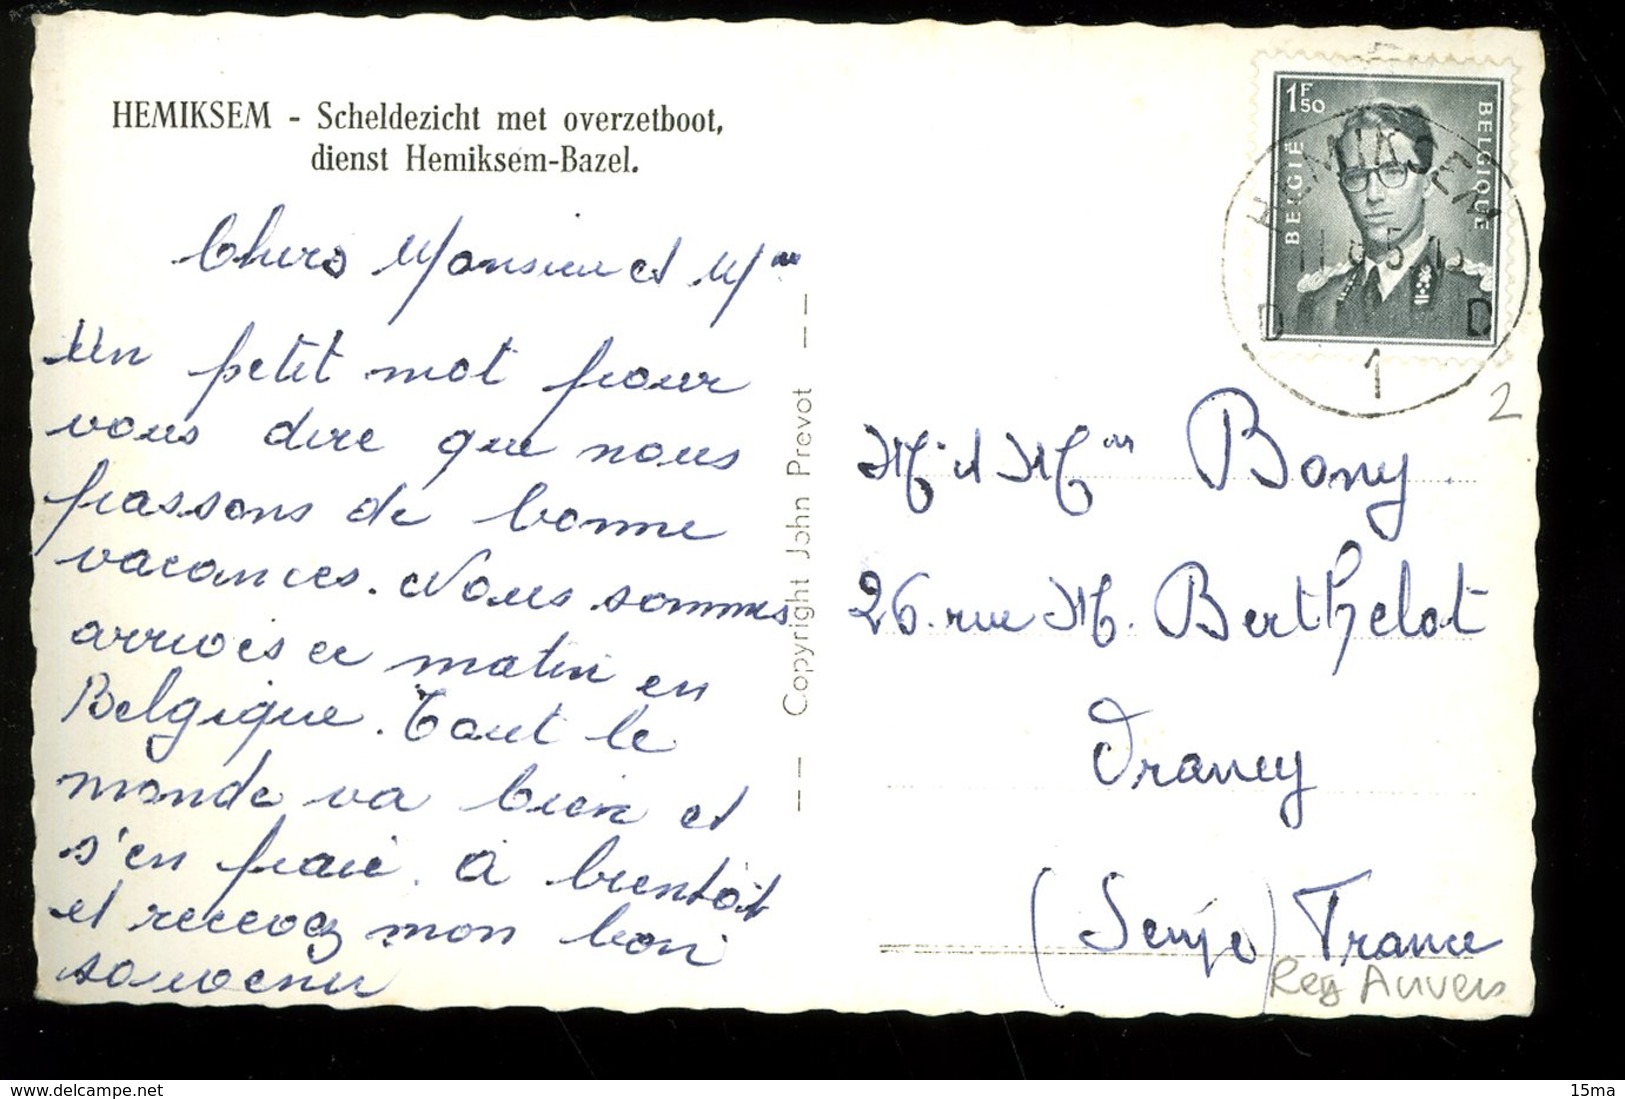 HEMIKSEM - Scheldezicht met overzetboot,
dienst Hemiksem-Bazel.
Chers Monsieur et Mme
Un petit mot pour
vous dire que nous
passons de bonne
vacances. Nous sommes
arrivés ce matin en
Belgique. Tout le
monde va bien et
s'en fraie. à bientôt
et recevez mon bon
souvenir
Copyright John Prevot
1F50
BELGIË
BELGIQUE
HEMIKSEM
D D
1
2
M. et Mme Bony
26. rue M. Berthelot
Drancy
(Seine) France
Reg Anvers
http://delcampe.net
15ma